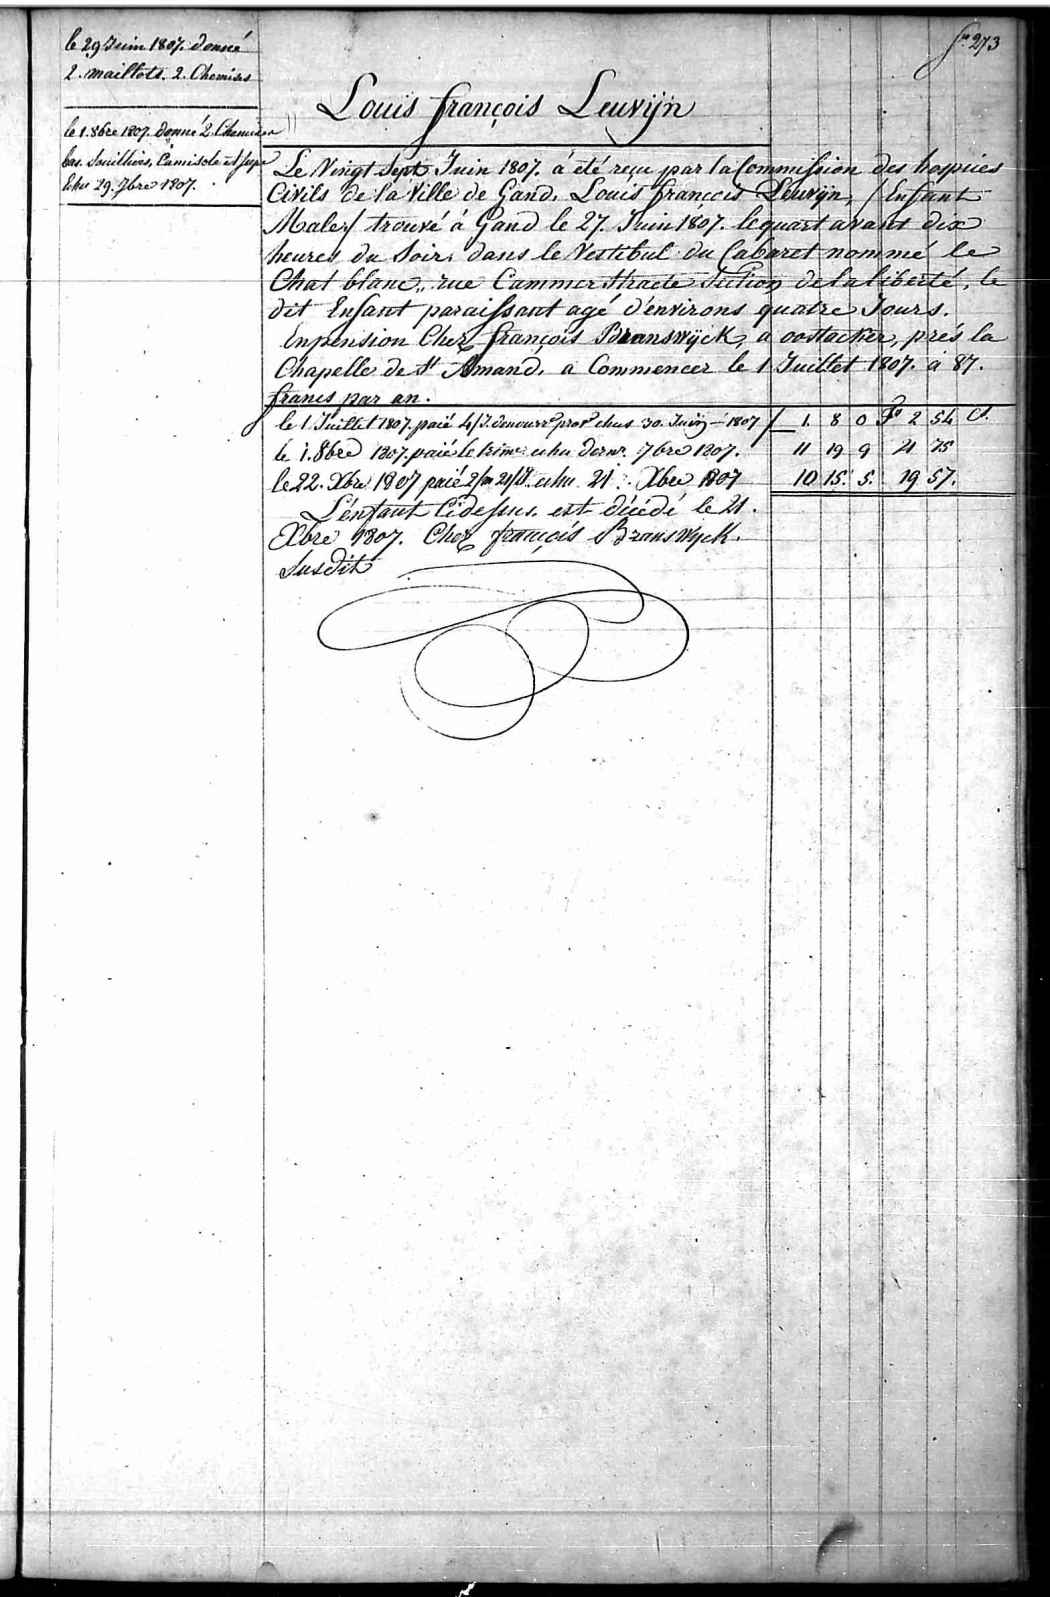 fo 273
le 29 Juin 1807. donné
2. maillots. 2. Chemises
le 1. 8bre 1807. donné 2 Chemises
bas. Souilliers, Camisole et Jupe
Echu 29. 7bre 1807.
Louis françois Leuvijn
Le Vingt Sept Juin 1807. à été reçu par la Commission des hospices
Civils de la Ville de Gand, Louis françois Leuvijn, / Enfant
Male / trouvé à Gand le 27. Juin 1807. le quart avant dix
heures du Soir, dans le Vestibul du Cabaret nommé le
Chat blanc,, rue Cammerstraete Section de la liberté, le
dit Enfant paraissant agé d'environs quatre Jours.
Enpension Chez françois Branswijck, a oostacker, prés la
Chapelle de St Amand, a Commencer le 1 Juillet 1807. à 87.
francs par an.
le 1 Juillet 1807. paié 4/J. echus 30. Juin 1807 1. 8 0 Fs 2 54 Cs.
le 1. 8bre 1807. paié le trime echu dernr. 7bre 1807. 11 19 9 21 75
le 22. Xbre 1807 paié 2/m 21/J echu 21 Xbre 1807 10 15. 5. 19 57.
L'énfant Cidessus. est décédé le 21.
Xbre 1807. Chez françois Branswijck.
Susdit